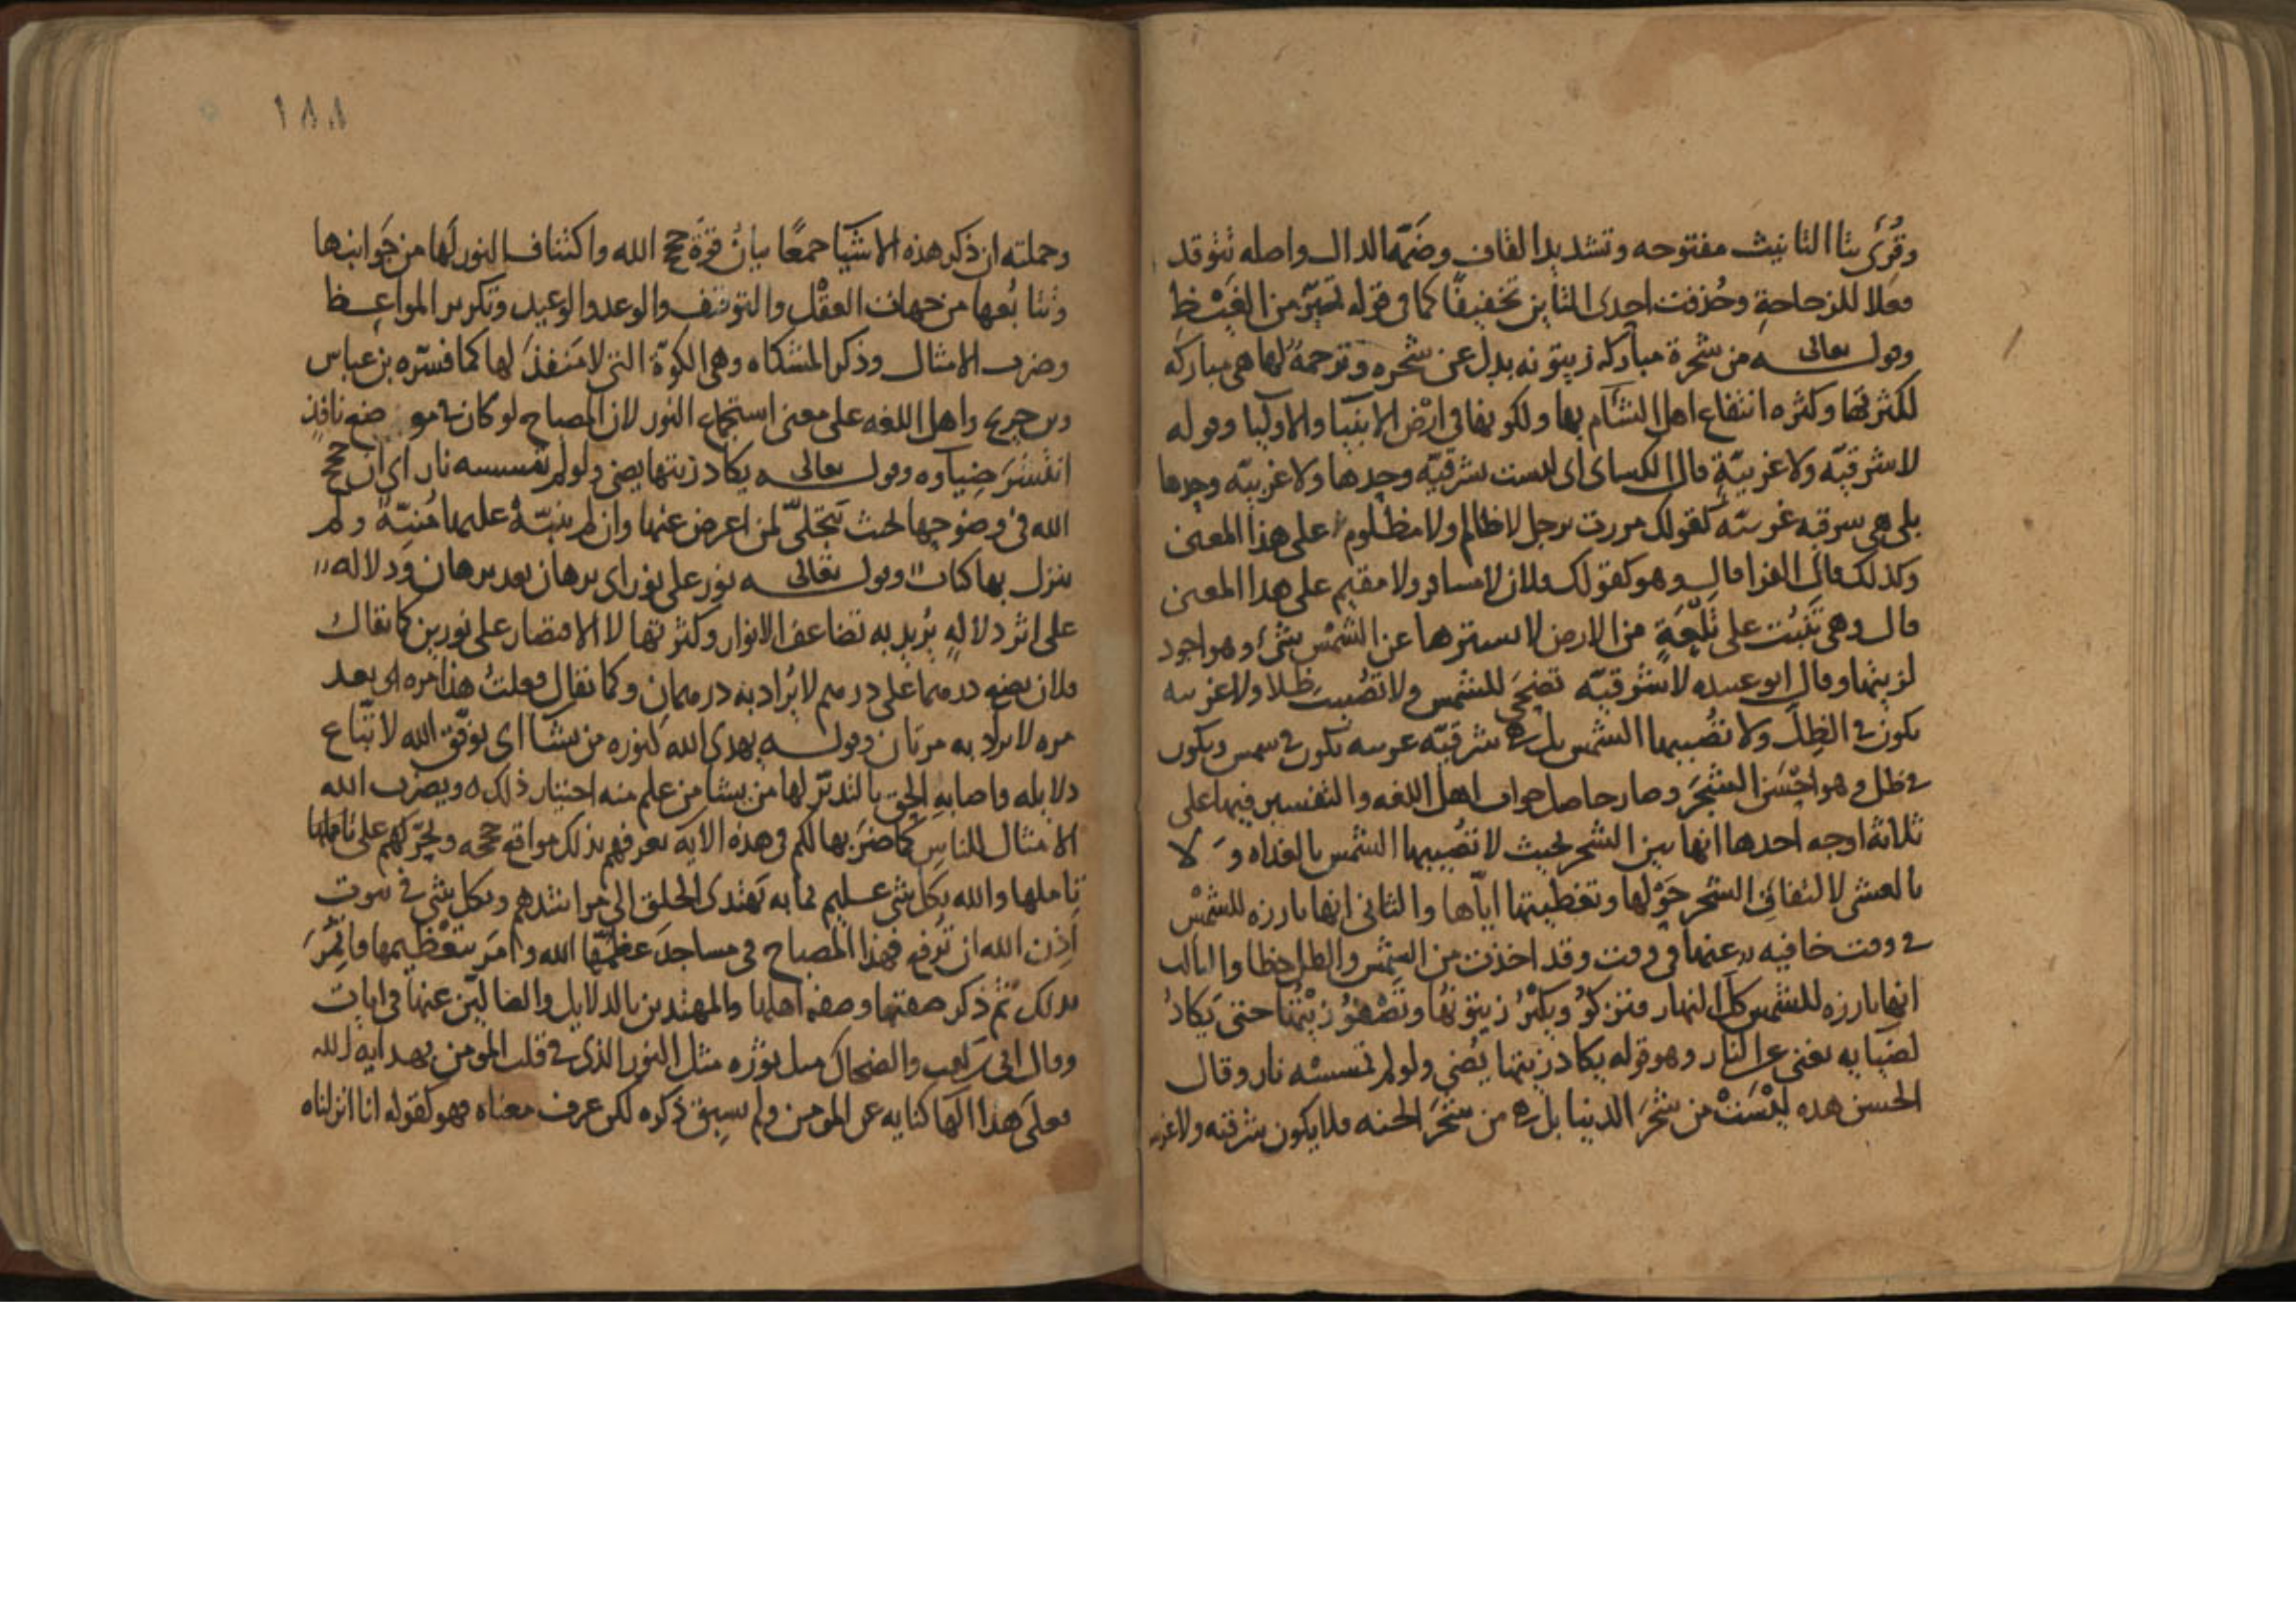 وقُرئ بتا التانيث مفتوحه وتشديد القاف وضمّه الدال واصله تتوقد
فعلا للزجاجةِ وحُذفت احدى التاين تخفيفًا كما فى قوله تميّز من الغَيْظِ
وقوله تعالى من شجرة مباركه زيتونه بدل عن شجره وترجمةٌ لها هى مباركه
لكثرتها وكثره انتفاع اهل الشام بها ولكونها فى ارْض الانبيا والاوليا وقوله
لا شرقيّه ولا غربيّةٍ قال الكساى اى ليست شرقيّه وحدها ولا غربيّه وحدها
بلى هى شرقيه غربيّه كقولك مررت برجل لا ظالم ولا مظلوم على هذا المعنى
وكذلك قال الفرا قال وهو كقولك فلان لا مسافر ولا مقيم على هذا المعنى
قال وهى تَنبُت على تَلْعَةٍ من الارض لا يسترها عن الشمْس شئ وهو اجود
لزيتها وقال ابو عبيده لا شرقيّه تضحَى للشمس ولا تصُيبُ ظلا ولا غربيه
تكون فى الظِلّ ولا تصُيبها الشمس بل هى شرقيّه غربيه تكون فى شمس وتكون
فى ظل وهو احْسَن الشجَر وصار حاصل جواب اهل اللغه والتفسير فيها على
ثلاثة اوجه احدها انها بين الشجر بحيث لا تصُيبها الشمس بالغداه وَلا
بالعشى لالتفافِ الشجر حَوْلها وتغطيتها ايّاها والثانى انها بارزه للشمْس
فى وقت خافيه عنها فى وقت وقد اخذت من الشمس والظل حظا والثالث
انها بارزه للشمس كل النهار فتزكوُ ويكثرُ زيتونُها ويَصْفوُ زيْتُها حتى يَكادُ
لضيايه يغنى عن النار وهو قوله يكاد زيتها يُضى ولو لم تمسسْه نار وقال
الحسن هذه ليْسَتْ من شجَر الدنيا بل هى من شجَر الجنه فلا يكون شرقيه ولا غربيه
١٨٨
وجملته ان ذكر هذه الاشيآ جمعًا بيانُ قوّة حجج الله واكتناف النور لَها من جَوانبها
وتتابُعها من جهات العقْل والتوقيف والوعد والوعيد وتكرير المواعظ
وضرب الامثال وذكر المشكاه وهى الكوّة التى لا مَنفذَ لها كما فسّره بن عباس
وبن جريج واهل اللغه على معنى استجماع النور لان المصباح لو كان فى موضع نافِذٍ
انتشرَ ضِياوه وقوله تعالى يكاد زيتها يضى ولو لم تمسسه نار اى ان حجج
الله فى وضوحها بحيث تتجلّى لمن اعرض عنها وان لم ينبّهْ عليها مُنبّهٌ ولم
ينزل بها كتاب وقوله تعالى نور على نور اى برهان بعد برهان ودلاله
على اثر دلالهٍ يُريد به تضاعف الانوار وكثرتها لا الاقتصار على نورين كما يقال
فلان يضع درهما على درهم لا يُراد به درهمان وكما يقال فعلتُ هذا مره اى بعد
مره لا يراد به مرتان وقوله يهدى الله لنوره من يشا اى يوفّق الله لاتّباع
دلايله واصابةِ الحق بالتدبّر لها من يشا من علم منه اختيار ذلك ه ويضرب الله
الامثال للناس كما ضرَبها لكم فى هذه الايه يعرفهم بذلك مواقع حججه ويحرّكهم على تاملها
تاملها والله بكل شئ عليم بما به يَهتدى الخلق الى مراشدهم وبكل شئ فى بيوت
اذِن الله ان تُرفع فهذا المصباح فى مساجدَ عظّمَها الله وامَر بتعْظيمها
بذلك ثم ذكر صفتها وصفه اهلها والمهتدين بالدلايل والضالّين عنها فى ايات
وقال ابى بن كعب والضحاك مثل نوره مثل النور الذى فى قلب المومن بهدايه الله
فعلى هذا الها كنايه عن المومن ولم يسبِق ذكره لكن عرف معناه فهو كقوله انا انزلناه